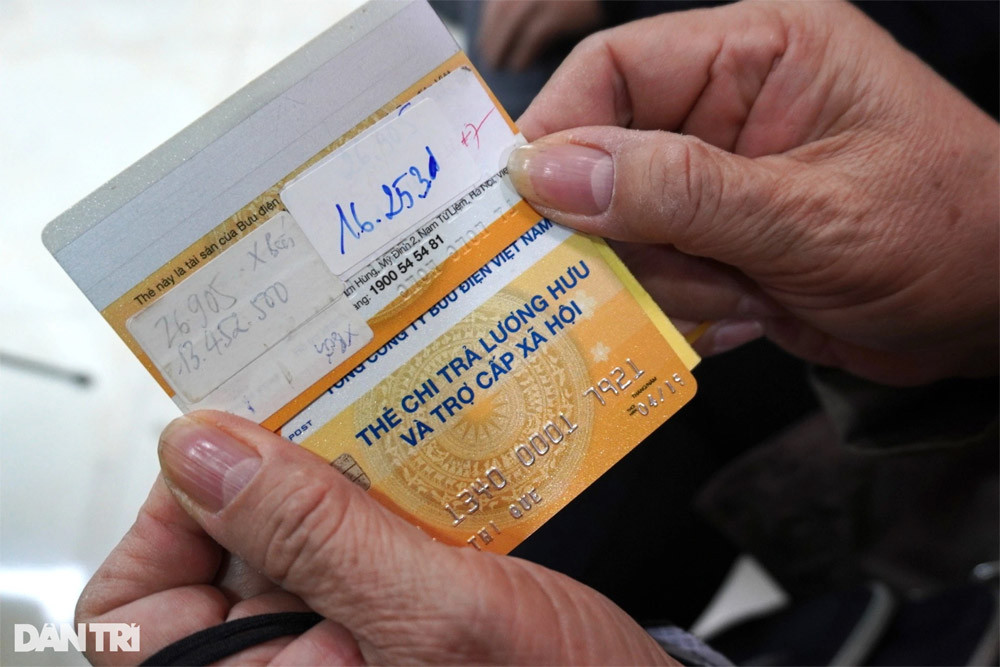 Thẻ này là tài sản của Bưu điện
16.253đ
+7
26905 - X Bến
13.452.500
Hùng, Mỹ Đình 2, Nam Từ Liêm, Hà Nội, Việ
ang: 1900 54 54 81
TỔNG CÔNG TY BƯU ĐIỆN VIỆT NAM
POST
THẺ CHI TRẢ LƯƠNG HƯU
VÀ TRỢ CẤP XÃ HỘI
1340 0001 7921
04/16
THI QUE
DÂN TRÍ